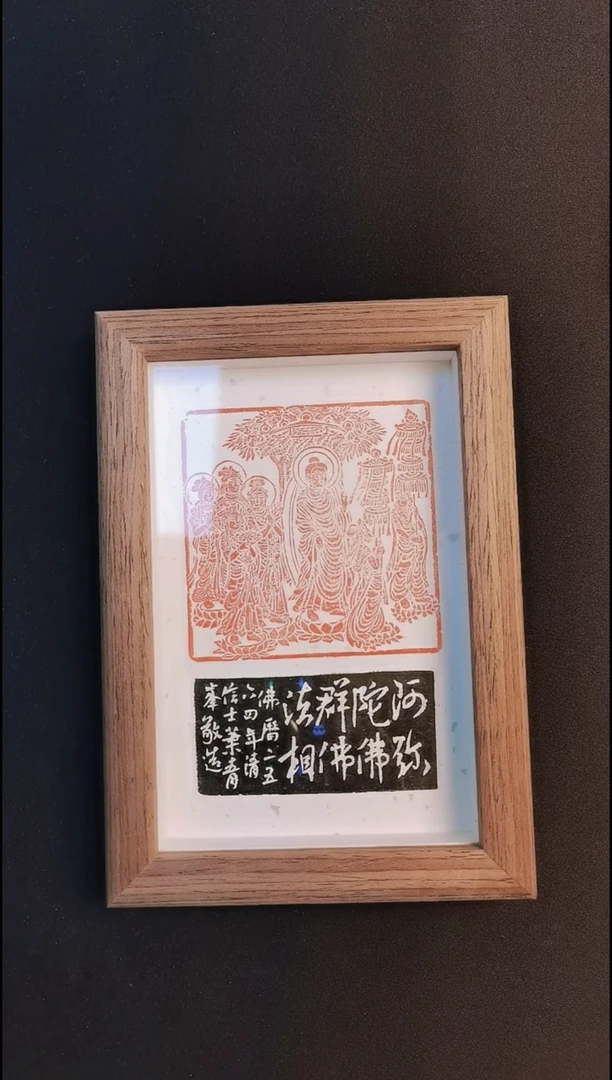 阿弥
陀佛
群佛
法相
佛曆二五
六四年清
信士葉青
峯敬造